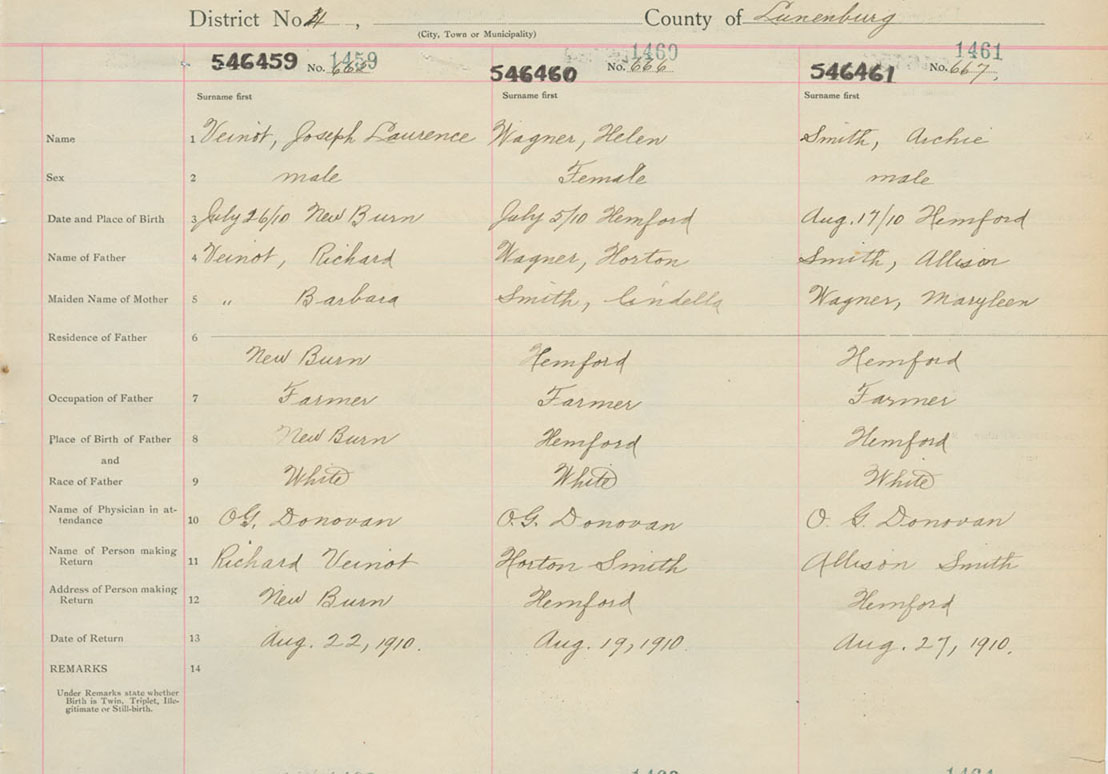 District No. 4, County of Lunenburg
(City, Town or Municipality)
546459 No. 1459 546460 No. 1460 666 546461 No. 1461 667,
Surname first Surname first Surname first
Name 1 Veinot, Joseph Laurence Wagner, Helen Smith, Archie
Sex 2 male Female male
Date and Place of Birth 3 July 26/10 New Burn July 5/10 Hemford Aug. 17/10 Hemford
Name of Father 4 Veinot, Richard Wagner, Horton Smith, Allison
Maiden Name of Mother 5 " Barbara Smith, Cindella Wagner, Maryleen
Residence of Father 6
New Burn Hemford Hemford
Occupation of Father 7 Farmer Farmer Farmer
Place of Birth of Father 8 New Burn Hemford Hemford
and
Race of Father 9 White White White
Name of Physician in at-
tendance 10 O.G. Donovan O.G. Donovan O. G. Donovan
Name of Person making
Return 11 Richard Veinot Horton Smith Allison Smith
Address of Person making
Return 12 New Burn Hemford Hemford
Date of Return 13 Aug. 22, 1910. Aug. 19, 1910. Aug. 27, 1910.
REMARKS 14
Under Remarks state whether
Birth is Twin, Triplet, Ille-
gitimate or Still-birth.